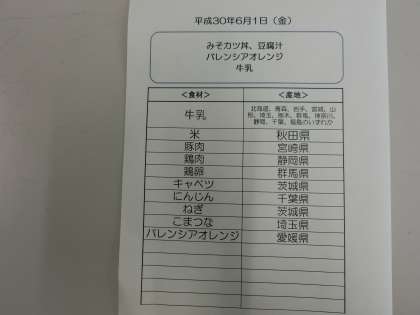 平成30年6月1日（金）
みそカツ丼、豆腐汁
バレンシアオレンジ
牛乳
＜食材＞ ＜産地＞
牛乳 北海道、青森、岩手、宮城、山
形、埼玉、栃木、群馬、神奈川、
静岡、千葉、福島のいずれか
米 秋田県
豚肉 宮崎県
鶏肉 静岡県
鶏卵 群馬県
キャベツ 茨城県
にんじん 千葉県
ねぎ 茨城県
こまつな 埼玉県
バレンシアオレンジ 愛媛県